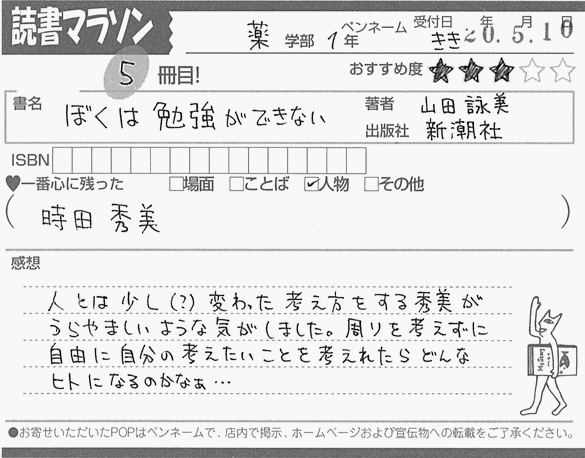 読書マラソン
薬 学部 1年 ペンネーム きき 受付日 20年5月10日
5 冊目! おすすめ度 ★★★☆☆
書名 ぼくは勉強ができない 著者 山田詠美
出版社 新潮社
ISBN
♥一番心に残った □場面 □ことば ☑人物 □その他
( 時田 秀美 )
感想
人とは少し(?)変わった考え方をする秀美が
うらやましいような気がしました。周りを考えずに
自由に自分の考えたいことを考えれたらどんな
ヒトになるのかなぁ…
●お寄せいただいたPOPはペンネームで、店内で掲示、ホームページおよび宣伝物への転載をご了承ください。